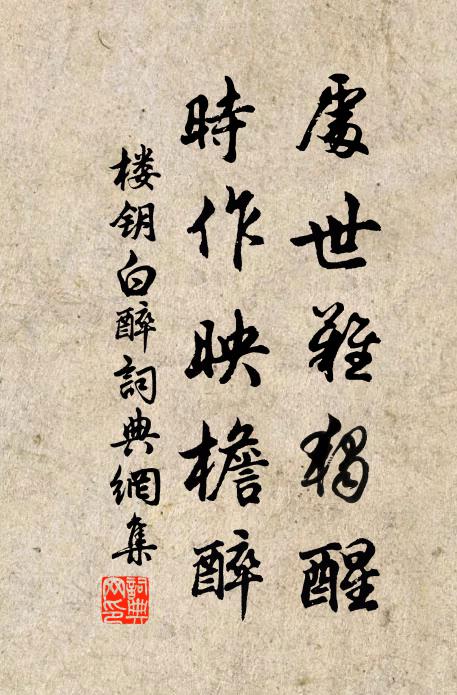 處世難獨醒
時作映檐醉
楼钥白醉詞典網集
詞典網印